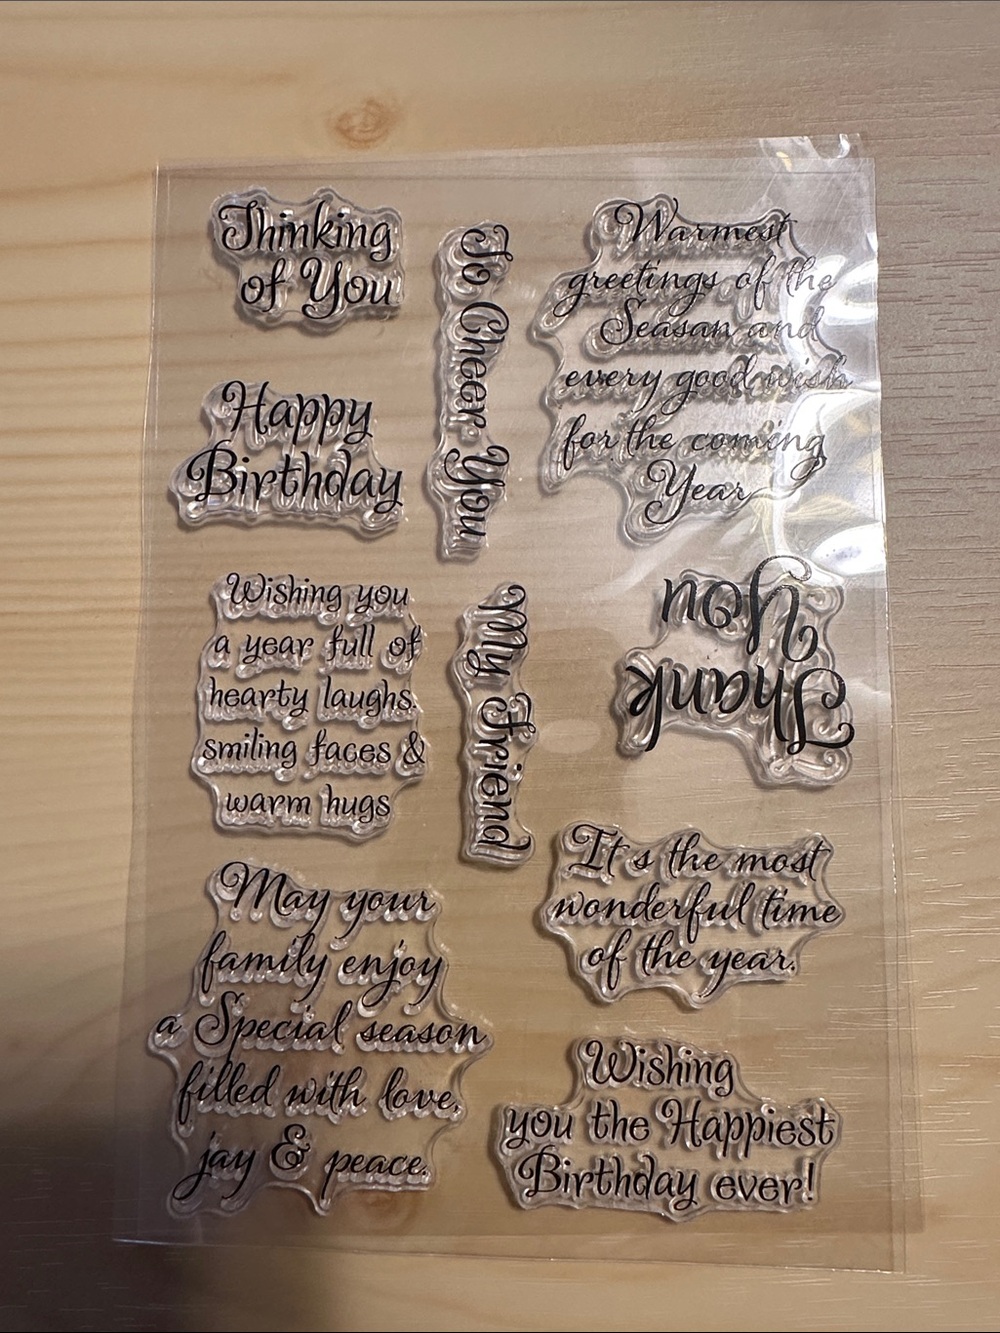 Thinking
of You
To Cheer You
Warmest
greetings of the
Seasan and
every good wish
for the coming
Year
Happy
Birthday
Wishing you
a year full of
hearty laughs.
smiling faces &
warm hugs
My Friend
Thank
You
It s the most
wonderful time
of the year.
May your
family enjoy
a Special season
filled with love,
jay & peace.
Wishing
you the Happiest
Birthday ever!